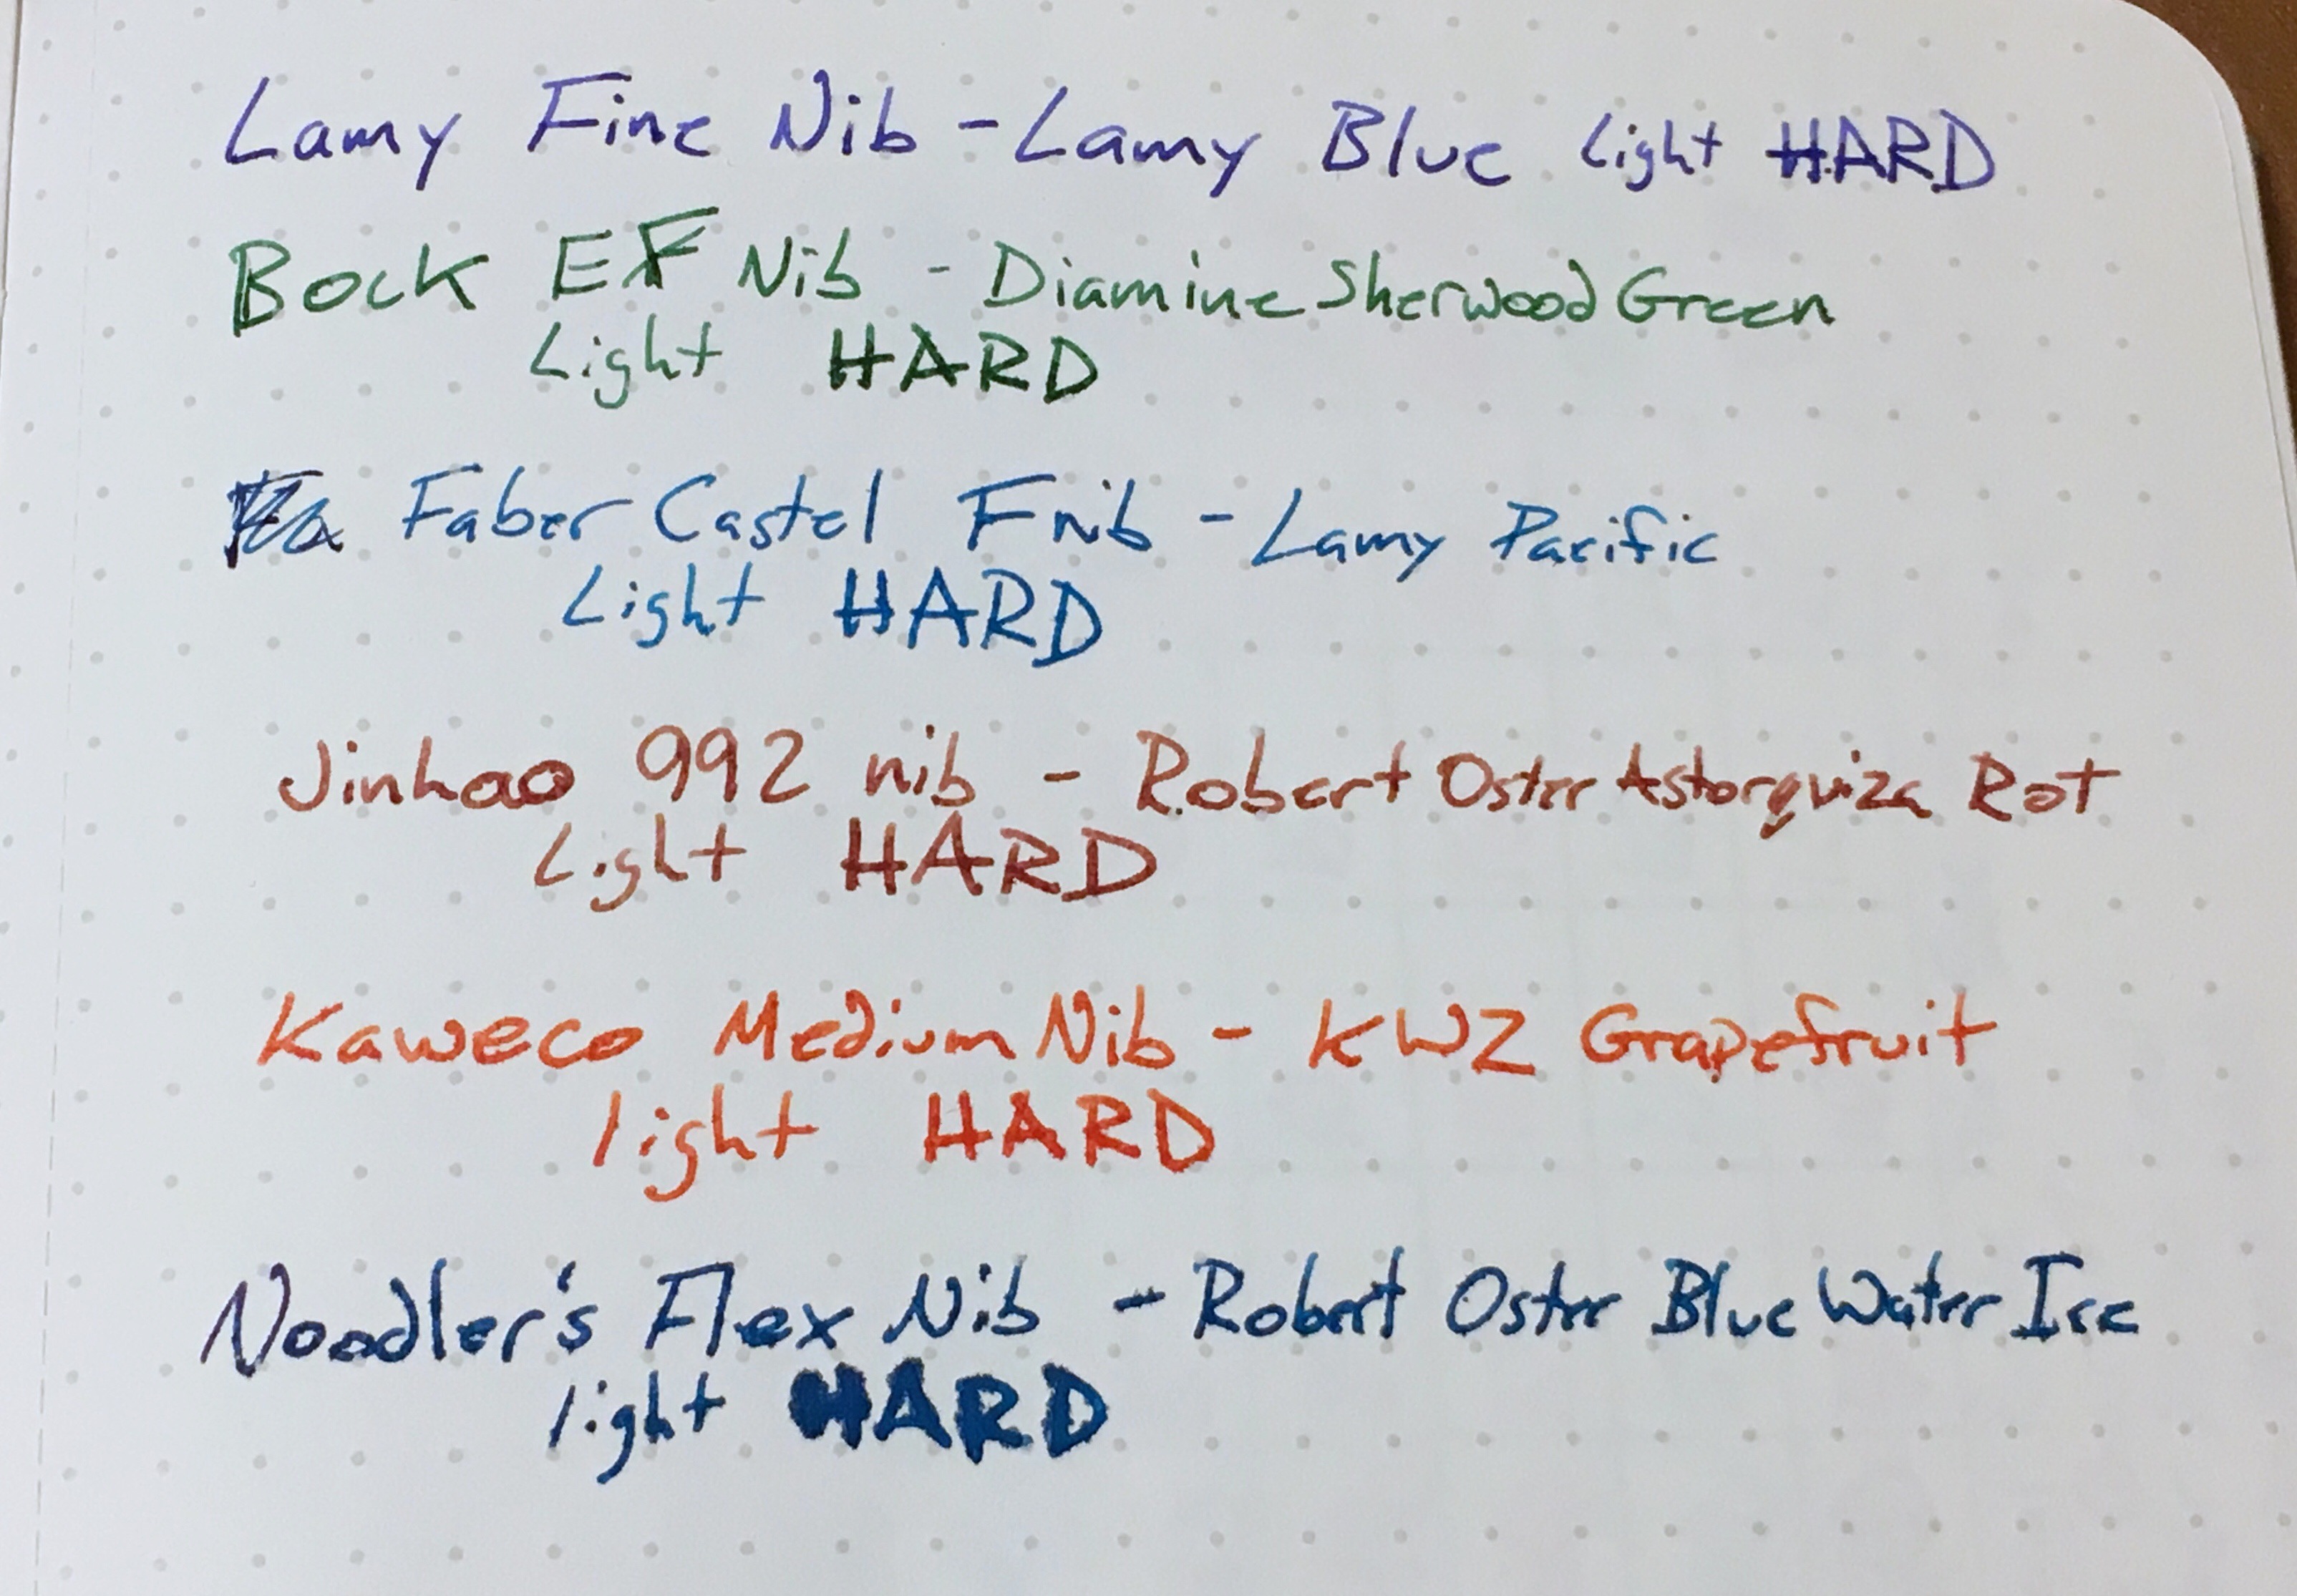 Lamy Fine Nib - Lamy Blue Light HARD
Bock EF Nib - Diamine Sherwood Green
Light HARD
Faber Castel F nib - Lamy Pacific
Light HARD
Jinhao 992 nib - Robert Oster Astorquiza Rot
Light HARD
Kaweco Medium Nib - KWZ Grapefruit
light HARD
Noodler's Flex Nib - Robert Oster Blue Water Ice
light HARD